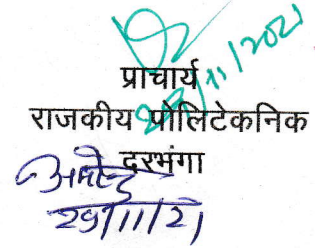 29/11/2021
प्राचार्य
राजकीय पॉलिटेकनिक
दरभंगा
29/11/21